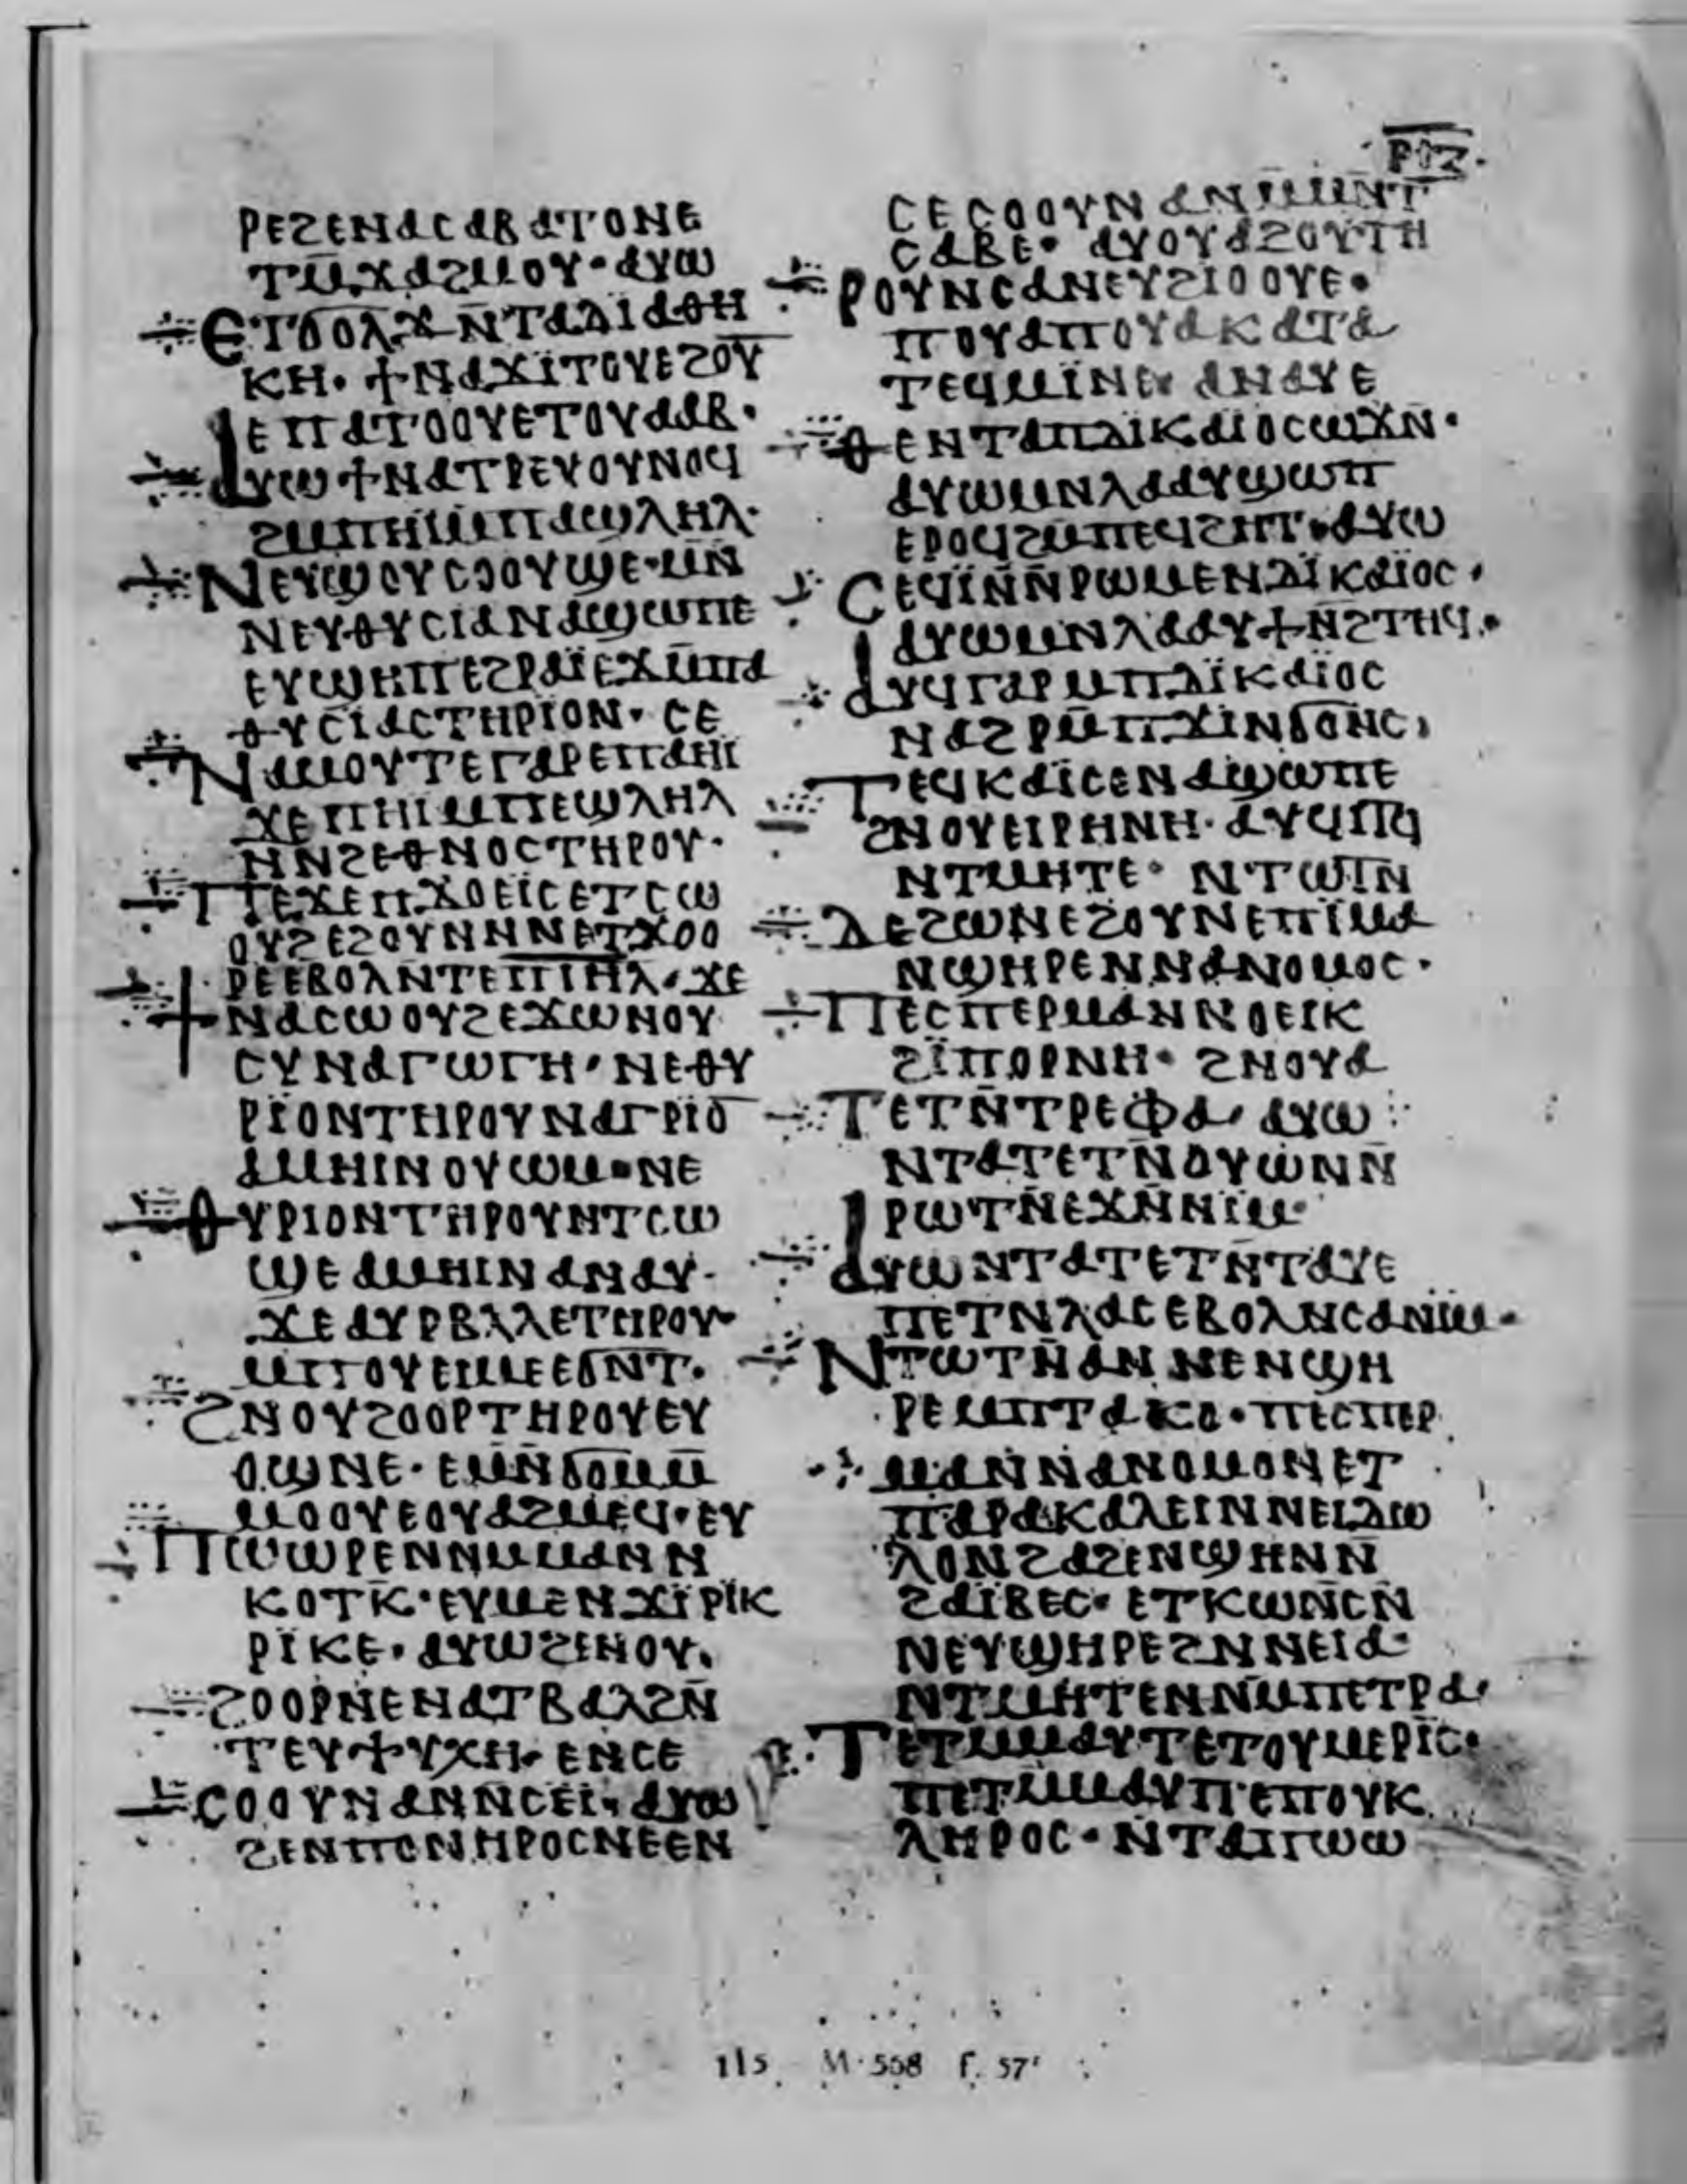 ⲣⲓⲍ
ⲣⲉϩⲉⲛⲁⲥⲁⲃⲃⲁⲧⲟⲛⲉ
ⲧⲙ̅ϫⲁϩⲙⲟⲩ· ⲁⲩⲱ
ⲉⲧϭⲟⲟⲗϫ̅ⲛ̅ⲧⲁⲇⲓⲁⲑⲏ
ⲕⲏ· ϯⲛⲁϫⲓⲧⲟⲩⲉϩⲟⲩ
ⲉⲡⲁⲧⲟⲟⲩⲉⲧⲟⲩⲁⲁⲃ·
ⲁⲩⲱϯⲛⲁⲧⲣⲉⲩⲟⲩⲛⲟϥ
ϩⲙⲡⲏⲓⲙ̅ⲡⲁϣⲗⲏⲗ·
ⲛⲉⲩϭⲟⲩⲥⲟⲟⲩϣⲉ·ⲙⲛ̅
ⲛⲉⲩⲑⲩⲥⲓⲁⲛⲁϣⲱⲡⲉ
ⲉⲩϣⲏⲡⲉϩⲣⲁⲓ̈ⲉϫⲙ̅ⲡⲁ
ⲑⲩⲥⲓⲁⲥⲧⲏⲣⲓⲟⲛ· ⲥⲉ
ⲛⲁⲙⲟⲩⲧⲉⲅⲁⲣⲉⲡⲁⲏⲓ
ϫⲉⲡⲏⲓⲙⲡⲉϣⲗⲏⲗ
ⲛⲛϩⲉⲑⲛⲟⲥⲧⲏⲣⲟⲩ·
ⲡⲉϫⲉⲡϫⲟⲉⲓⲥⲉⲧⲥⲱ
ⲟⲩϩⲉϩⲟⲩⲛⲛⲛⲉⲧϫⲟⲟ
ⲣⲉⲉⲃⲟⲗⲛⲧⲉⲡⲓ̅ⲏ̅ⲗ̅· ϫⲉ
ϯⲛⲁⲥⲱⲟⲩϩⲉϫⲱⲛⲟⲩ
ⲥⲩⲛⲁⲅⲱⲅⲏ· ⲛⲉⲑⲩ
ⲣⲓⲟⲛⲧⲏⲣⲟⲩⲛⲁⲅⲣⲓⲟ̅
ⲁⲙⲏⲓⲛⲟⲩⲱⲙ· ⲛⲉ
ⲑⲩⲣⲓⲟⲛⲧⲏⲣⲟⲩⲛⲧⲥⲱ
ϣⲉⲁⲙⲏⲓⲛⲁⲛⲁⲩ·
ϫⲉⲁⲩⲣⲃⲗ̅ⲗⲉⲧⲏⲣⲟⲩ·
ⲙⲡⲟⲩⲉⲓⲙⲉⲉϭⲛ̅ⲧ·
ϩⲛⲟⲩϩⲟⲟⲣⲧⲏⲣⲟⲩⲉⲩ
ⲟϣⲛⲉ· ⲉⲙⲛ̅ϭⲟⲙⲙ̅
ⲙⲟⲟⲩⲉⲟⲩⲁϩⲙⲉϥ· ⲉⲩ
ⲡⲱⲱⲣⲉⲛⲛⲙⲙⲁⲛⲛ
ⲕⲟⲧⲕ· ⲉⲩⲙⲉⲛϫⲓⲣⲓⲕ
ⲣⲓⲕⲉ· ⲁⲩⲱϩⲉⲛⲟⲩ
ϩⲟⲟⲣⲛⲉⲛⲁⲧⲃⲁⲗϩⲛ̅
ⲧⲉⲩⲯⲩⲭⲏ· ⲉⲛⲥⲉ
ⲥⲟⲟⲩⲛⲁⲛⲛ̅ⲥⲉⲓ· ⲁⲩⲱ
ϩⲉⲛⲡⲟⲛⲏⲣⲟⲥⲛⲉⲉⲛ
ⲥⲉⲥⲟⲟⲩⲛⲁⲛⲙ̅ⲙⲛ̅ⲧ
ⲥⲁⲃⲉ· ⲁⲩⲟⲩⲁϩⲟⲩⲧⲏ
ⲣⲟⲩⲛⲥⲁⲛⲉⲩϩⲓⲟⲟⲩⲉ·
ⲡⲟⲩⲁⲡⲟⲩⲁⲕⲁⲧⲁ
ⲧⲉϥⲙⲓⲛⲉ· ⲁⲛⲁⲩⲉ
ⲑⲉⲛⲧⲁⲡⲇⲓⲕⲁⲓⲟⲥⲱϫⲛ·
ⲁⲩⲱⲙⲛⲗⲁⲁⲩϣⲱⲡ
ⲉⲣⲟϥϩⲙ̅ⲡⲉϥϩⲏⲧ· ⲁⲩⲱ
ⲥⲉϥⲓⲛ̅ⲛ̅ⲣⲱⲙⲉⲛⲇⲓ̈ⲕⲁⲓ̈ⲟⲥ·
ⲁⲩⲱⲙⲛⲗⲁⲁⲩϯⲛ̅ϩⲧⲏϥ·
ⲁⲩϥⲓⲅⲁⲣⲙ̅ⲡⲇⲓ̈ⲕⲁⲓ̈ⲟⲥ
ⲛⲁϩⲣⲙ̅ⲡϫⲓⲛϭⲟⲛⲥ·
ⲧⲉϥⲕⲁⲓⲥⲉⲛⲁϣⲱⲡⲉ
ϩⲛⲟⲩⲉⲓⲣⲏⲛⲏ· ⲁⲩϥⲓⲧϥ
ⲛⲧⲙⲏⲧⲉ· ⲛⲧⲱⲧⲛ
ⲇⲉϩⲱⲛⲉϩⲟⲩⲛⲉⲡⲓⲙⲁ
ⲛϣⲏⲣⲉⲛⲛⲁⲛⲟⲙⲟⲥ·
ⲡⲉⲥⲡⲉⲣⲙⲁⲛⲛⲟⲉⲓⲕ
ϩⲓ̈ⲡⲟⲣⲛⲏ· ϩⲛⲟⲩⲁ
ⲧⲉⲧⲛ̅ⲧⲣⲉⲫⲁ· ⲁⲩⲱ
ⲛⲧⲁⲧⲉⲧⲛ̅ⲟⲩⲱⲛⲛ̅
ⲣⲱⲧⲛ̅ⲉϫⲛ̅ⲛⲓⲙ·
ⲁⲩⲱⲛⲧⲁⲧⲉⲧⲛ̅ⲧⲁⲩⲉ
ⲡⲉⲧⲛⲗⲁⲥⲉⲃⲟⲗⲛⲥⲁⲛⲓⲙ·
ⲛⲧⲱⲧⲛ̅ⲁⲛⲛⲉⲛϣⲏ
ⲣⲉⲙⲡⲧⲁⲕⲟ· ⲡⲉⲥⲡⲉⲣ
ⲙⲁⲛⲛⲁⲛⲟⲙⲟⲛⲉⲧ
ⲡⲁⲣⲁⲕⲁⲗⲉⲓⲛⲛⲉⲓⲇⲱ
ⲗⲟⲛϩⲁϩⲉⲛϣⲏⲛⲛ̅
ϩⲁⲓ̈ⲃⲉⲥ· ⲉⲧⲕⲱⲛ̅ⲥⲛ̅
ⲛⲉⲩϣⲏⲣⲉϩⲛⲛⲉⲓⲁ·
ⲛⲧⲙⲏⲧⲉⲛⲛⲙⲡⲉⲧⲣⲁ·
ⲧⲉⲧⲙⲙⲁⲩⲧⲉⲧⲟⲩⲙⲉⲣⲓⲥ·
ⲡⲉⲧⲙⲙⲁⲩⲡⲉⲡⲟⲩⲕ
ⲗⲏⲣⲟⲥ· ⲛⲧⲁⲓⲡⲱⲱ
115 M·568 f. 57ʳ